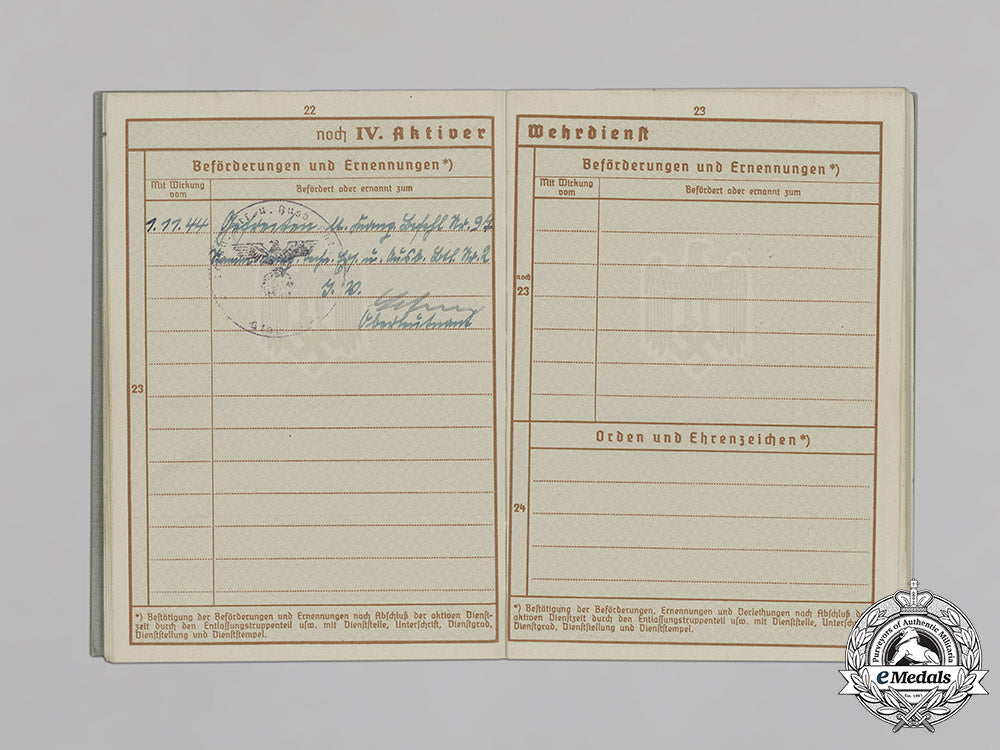 22
noch IV. Aktiver
Beförderungen und Ernennungen*)
Mit Wirkung vom
Befördert oder ernannt zum
1.11.44 Gefreiten lt. Komp. Befehl Nr.
u. Ausb. Btl. Nr. 2
I. V.
Oberleutnant
23
23
Wehrdienst
Beförderungen und Ernennungen*)
Mit Wirkung vom
Befördert oder ernannt zum
noch
23
Orden und Ehrenzeichen*)
24
*) Bestätigung der Beförderungen und Ernennungen nach Abschluß der aktiven Dienst-
zeit durch den Entlassungstruppenteil usw. mit Dienststelle, Unterschrift, Dienstgrad,
Dienststellung und Dienststempel.
*) Bestätigung der Beförderungen, Ernennungen und Verleihungen nach Abschluß der
aktiven Dienstzeit durch den Entlassungstruppenteil usw. mit Dienststelle, Unterschr
Dienstgrad, Dienststellung und Dienststempel.
Purveyors of Authentic Militaria
eMedals